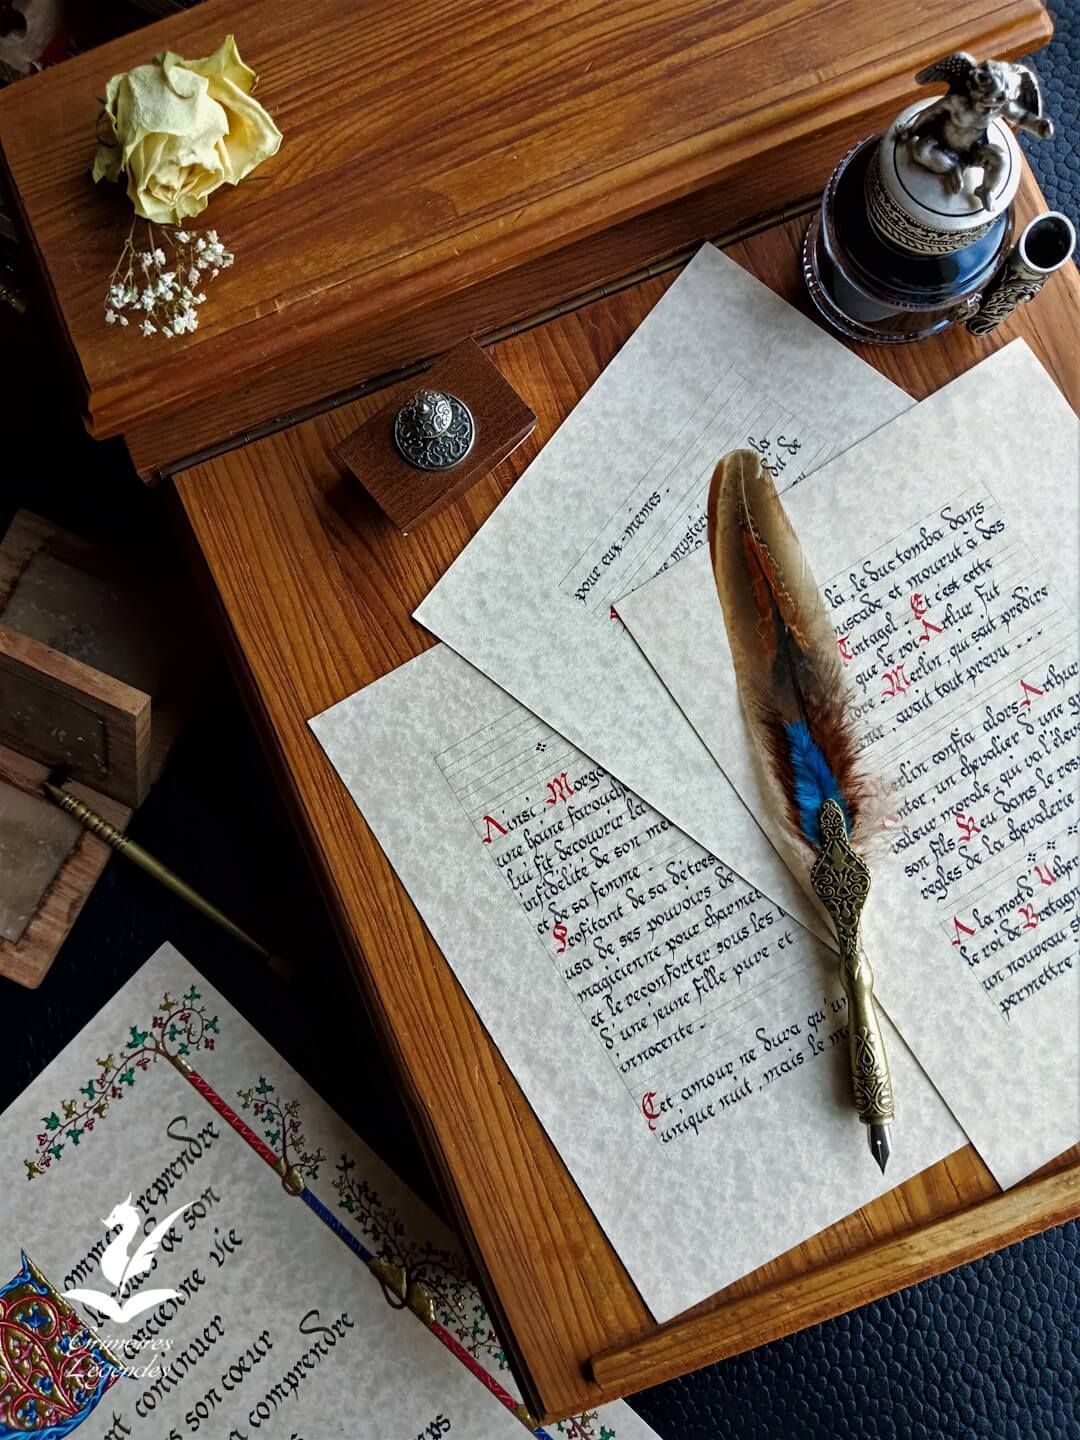 la
dit de
pour eux-mêmes -
là, le duc tomba dans
et mourut à des
Tintagel - Et c'est cette
que le roi Arthur fut
Merlin, qui sait prédire
, avait tout prévu - - -
confia alors Arthur
, un chevalier d'une
valeur morale, qui va l'élev
son fils Keu dans le res
règles de la chevalerie
A la mort d'Uther
le roi de Bretagn
un nouveau
permettre
Ainsi, Morga
une haine farouch
lui fit découvrir la
infidélité de son
et de sa femme -
Profitant de sa détres
usa de ses pouvoirs de
magicienne pour charmer
et le réconforter sous les
d'une jeune fille pure et
innocente -
Cet amour ne dura qu'u
unique nuit, mais le m
reprendre
de son
ancienne vie
continuer
son cœur
comprendre
Grimoires
Légendes